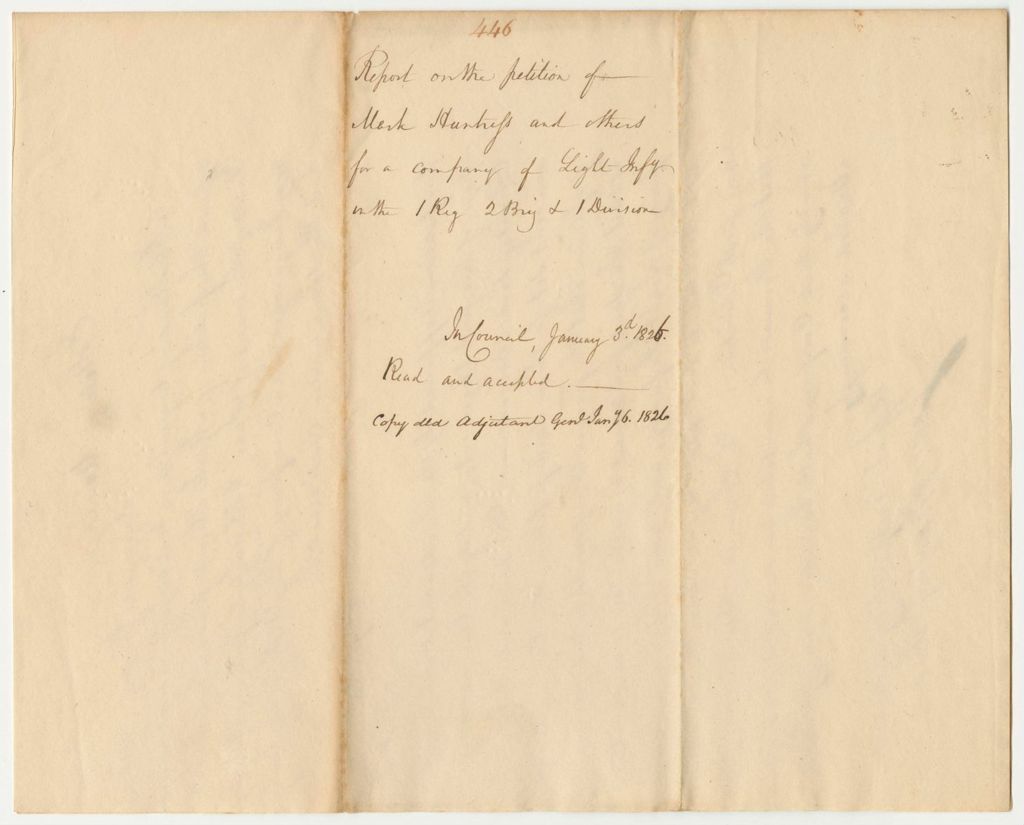 446
Report on the petition of
Mark Huntress and others
for a company of Light Infy
in the 1 Reg 2 Brig & 1 Division
In Council, January 3d. 1826.
Read and accepted.
Copy ded Adjutant Genl Jany 6. 1826